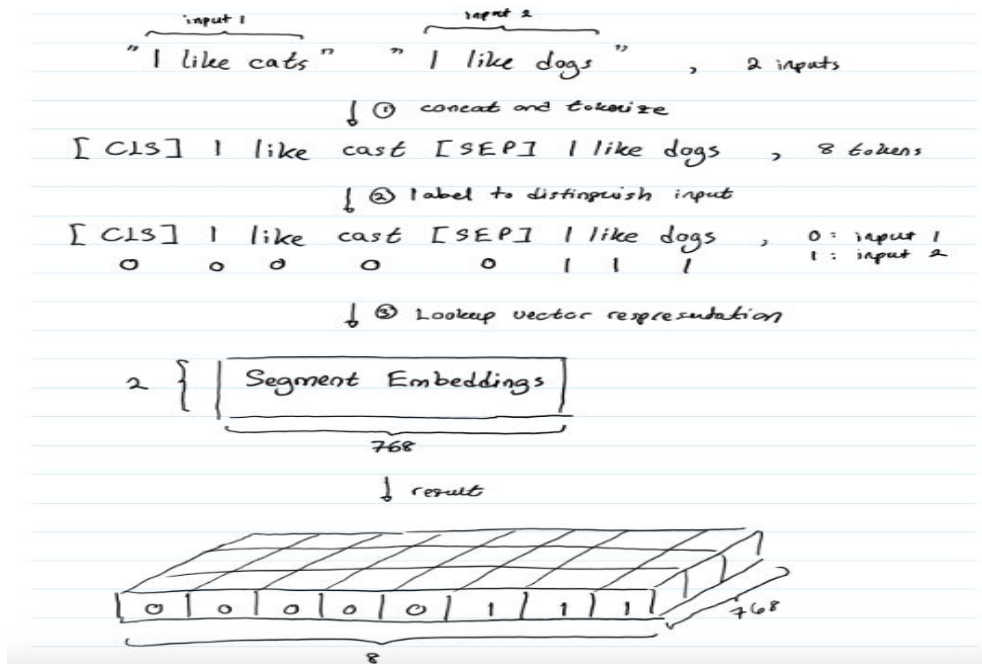 input 1 input 2
"I like cats" "I like dogs", 2 inputs
① concat and tokenize
[CLS] I like cast [SEP] I like dogs, 8 tokens
② label to distinguish input
[CLS] I like cast [SEP] I like dogs, 0: input 1
0 0 0 0 0 1 1 1 1: input 2
③ Lookup vector respresentation
2 { Segment Embeddings
768
result
0 0 0 0 0 1 1 1
768
8